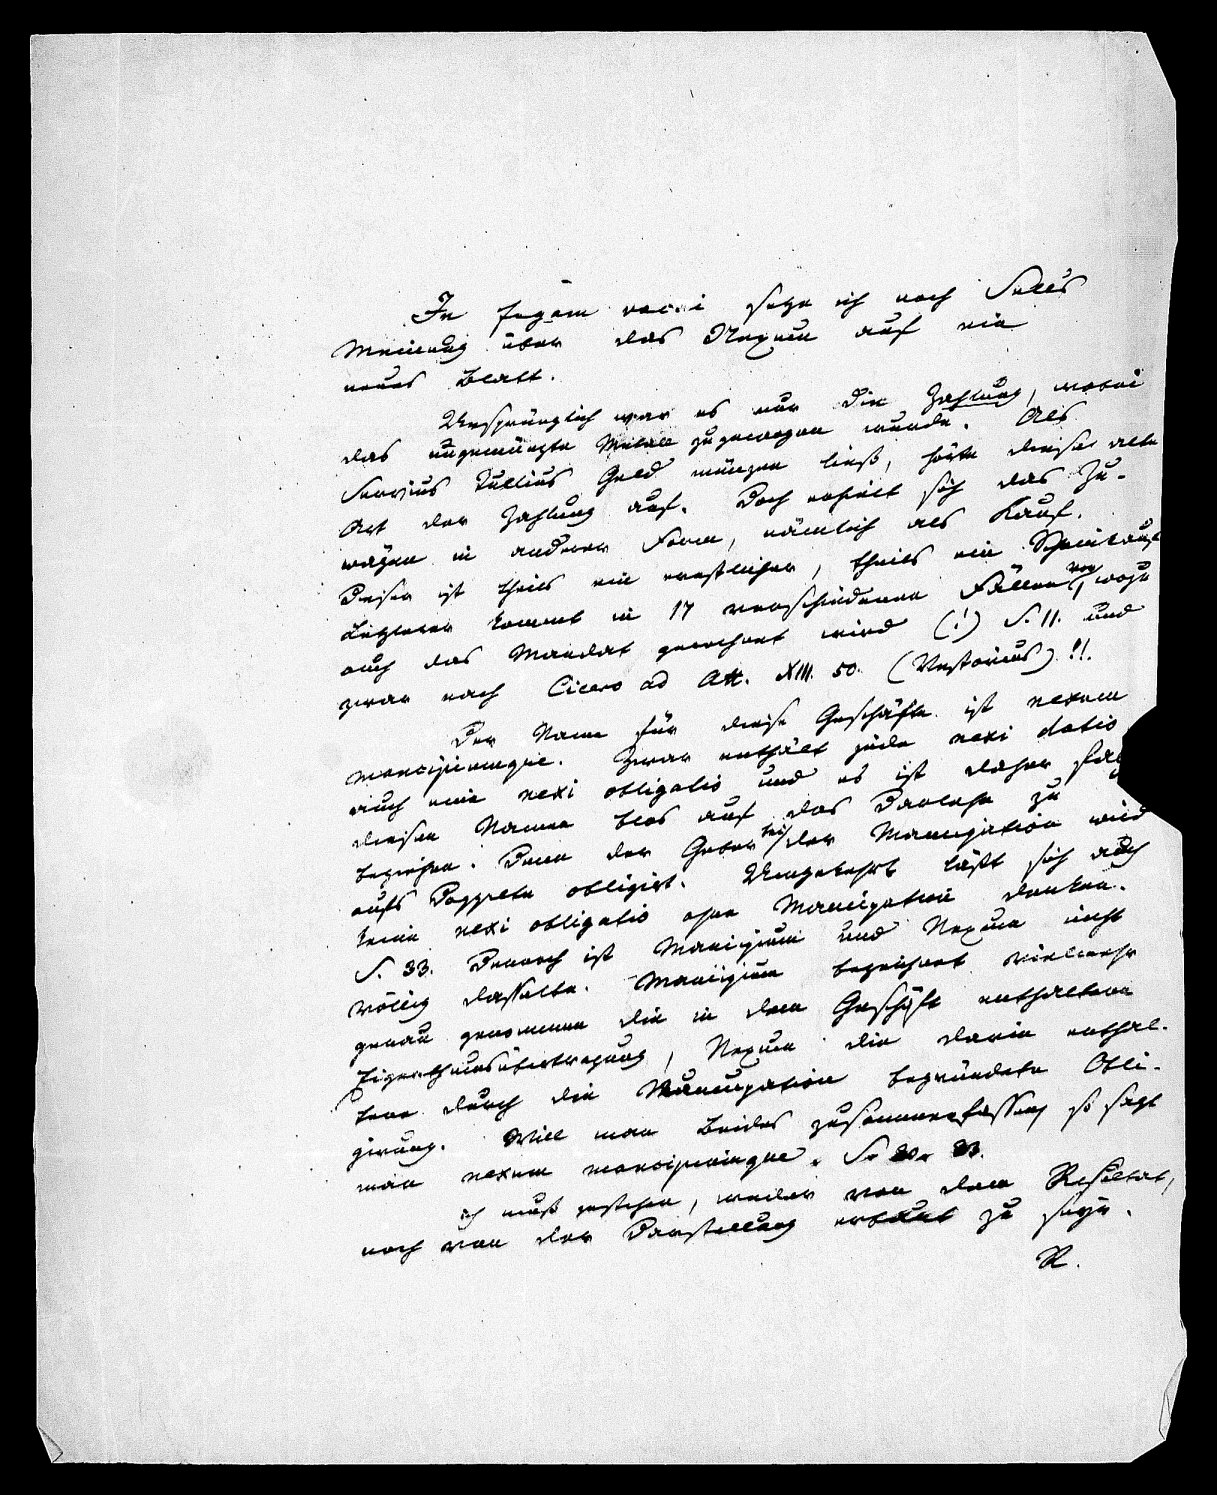 In fugam vacui setze ich noch Sells
Meinung über das Nexum auf ein
neues Blatt.
Ursprünglich war es nur die Zahlung, wobei
das ungemünzte Metall zugewogen wurde. Als
Servius Tullius Geld münzen ließ, hörte diese alte
Art der Zahlung auf. Doch erhielt sich das Zu-
wägen in anderer Form, nämlich als Kauf.
Dieser ist theils ein ernstlicher, theils ein Scheinkauf
Letzterer kommt in 17 verschiedenen Fällen vor, wozu
auch das Mandat gerechnet wird (!) S. 11. und
zwar nach Cicero ad Att. XIII. 50. (Vestorius) !!.
Der Name für diese Geschäfte ist nexum
mancipiumque. Zwar enthält jede nexi datio
auch eine nexi obligatio und es ist daher
diesen Namen blos auf das Darlehn zu
beziehen. Denn der Geber bei der Mancipation wird
aufs Doppelte obligirt. Umgekehrt läßt sich auch
keine nexi obligatio ohne Mancipation denken.
S. 33. Dennoch ist Mancipium und Nexum nicht
völlig dasselbe. Mancipium bezeichnet vielmehr
genau genommen die in dem Geschäft enthaltene
Eigenthumsübertragung, Nexum die darin enthal-
tene durch die Mancipation begründete Obli-
girung. Will man Beides zusammenfassen, so sagt
man nexum mancipiumque. S. 33.
Ich muß gestehen, weder von dem Resultat,
noch von der Darstellung erbaut zu seyn.
R.